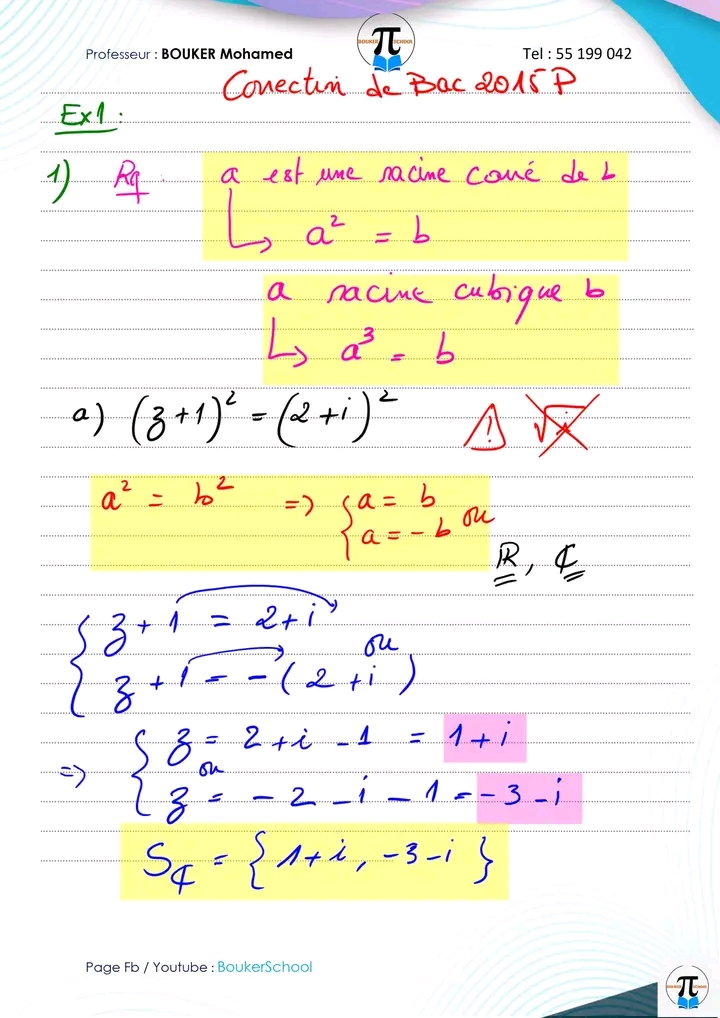 Professeur : BOUKER Mohamed
BOUKER SCHOOL
Tel : 55 199 042
Correction de Bac 2015 P
Ex1 :
1) Rq : a est une racine carré de b
↳ a² = b
a racine cubique b
↳ a³ = b
a) (z+1)² = (2+i)² ⚠ √i
a² = b² => { a = b ou
a = -b
ℝ, ℂ
{ z + 1 = 2+i
ou
z + 1 = -(2+i)
=> { z = 2+i -1 = 1+i
ou
z = -2 -i -1 = -3-i
Sℂ = { 1+i, -3-i }
Page Fb / Youtube : BoukerSchool
BOUKER SCHOOL